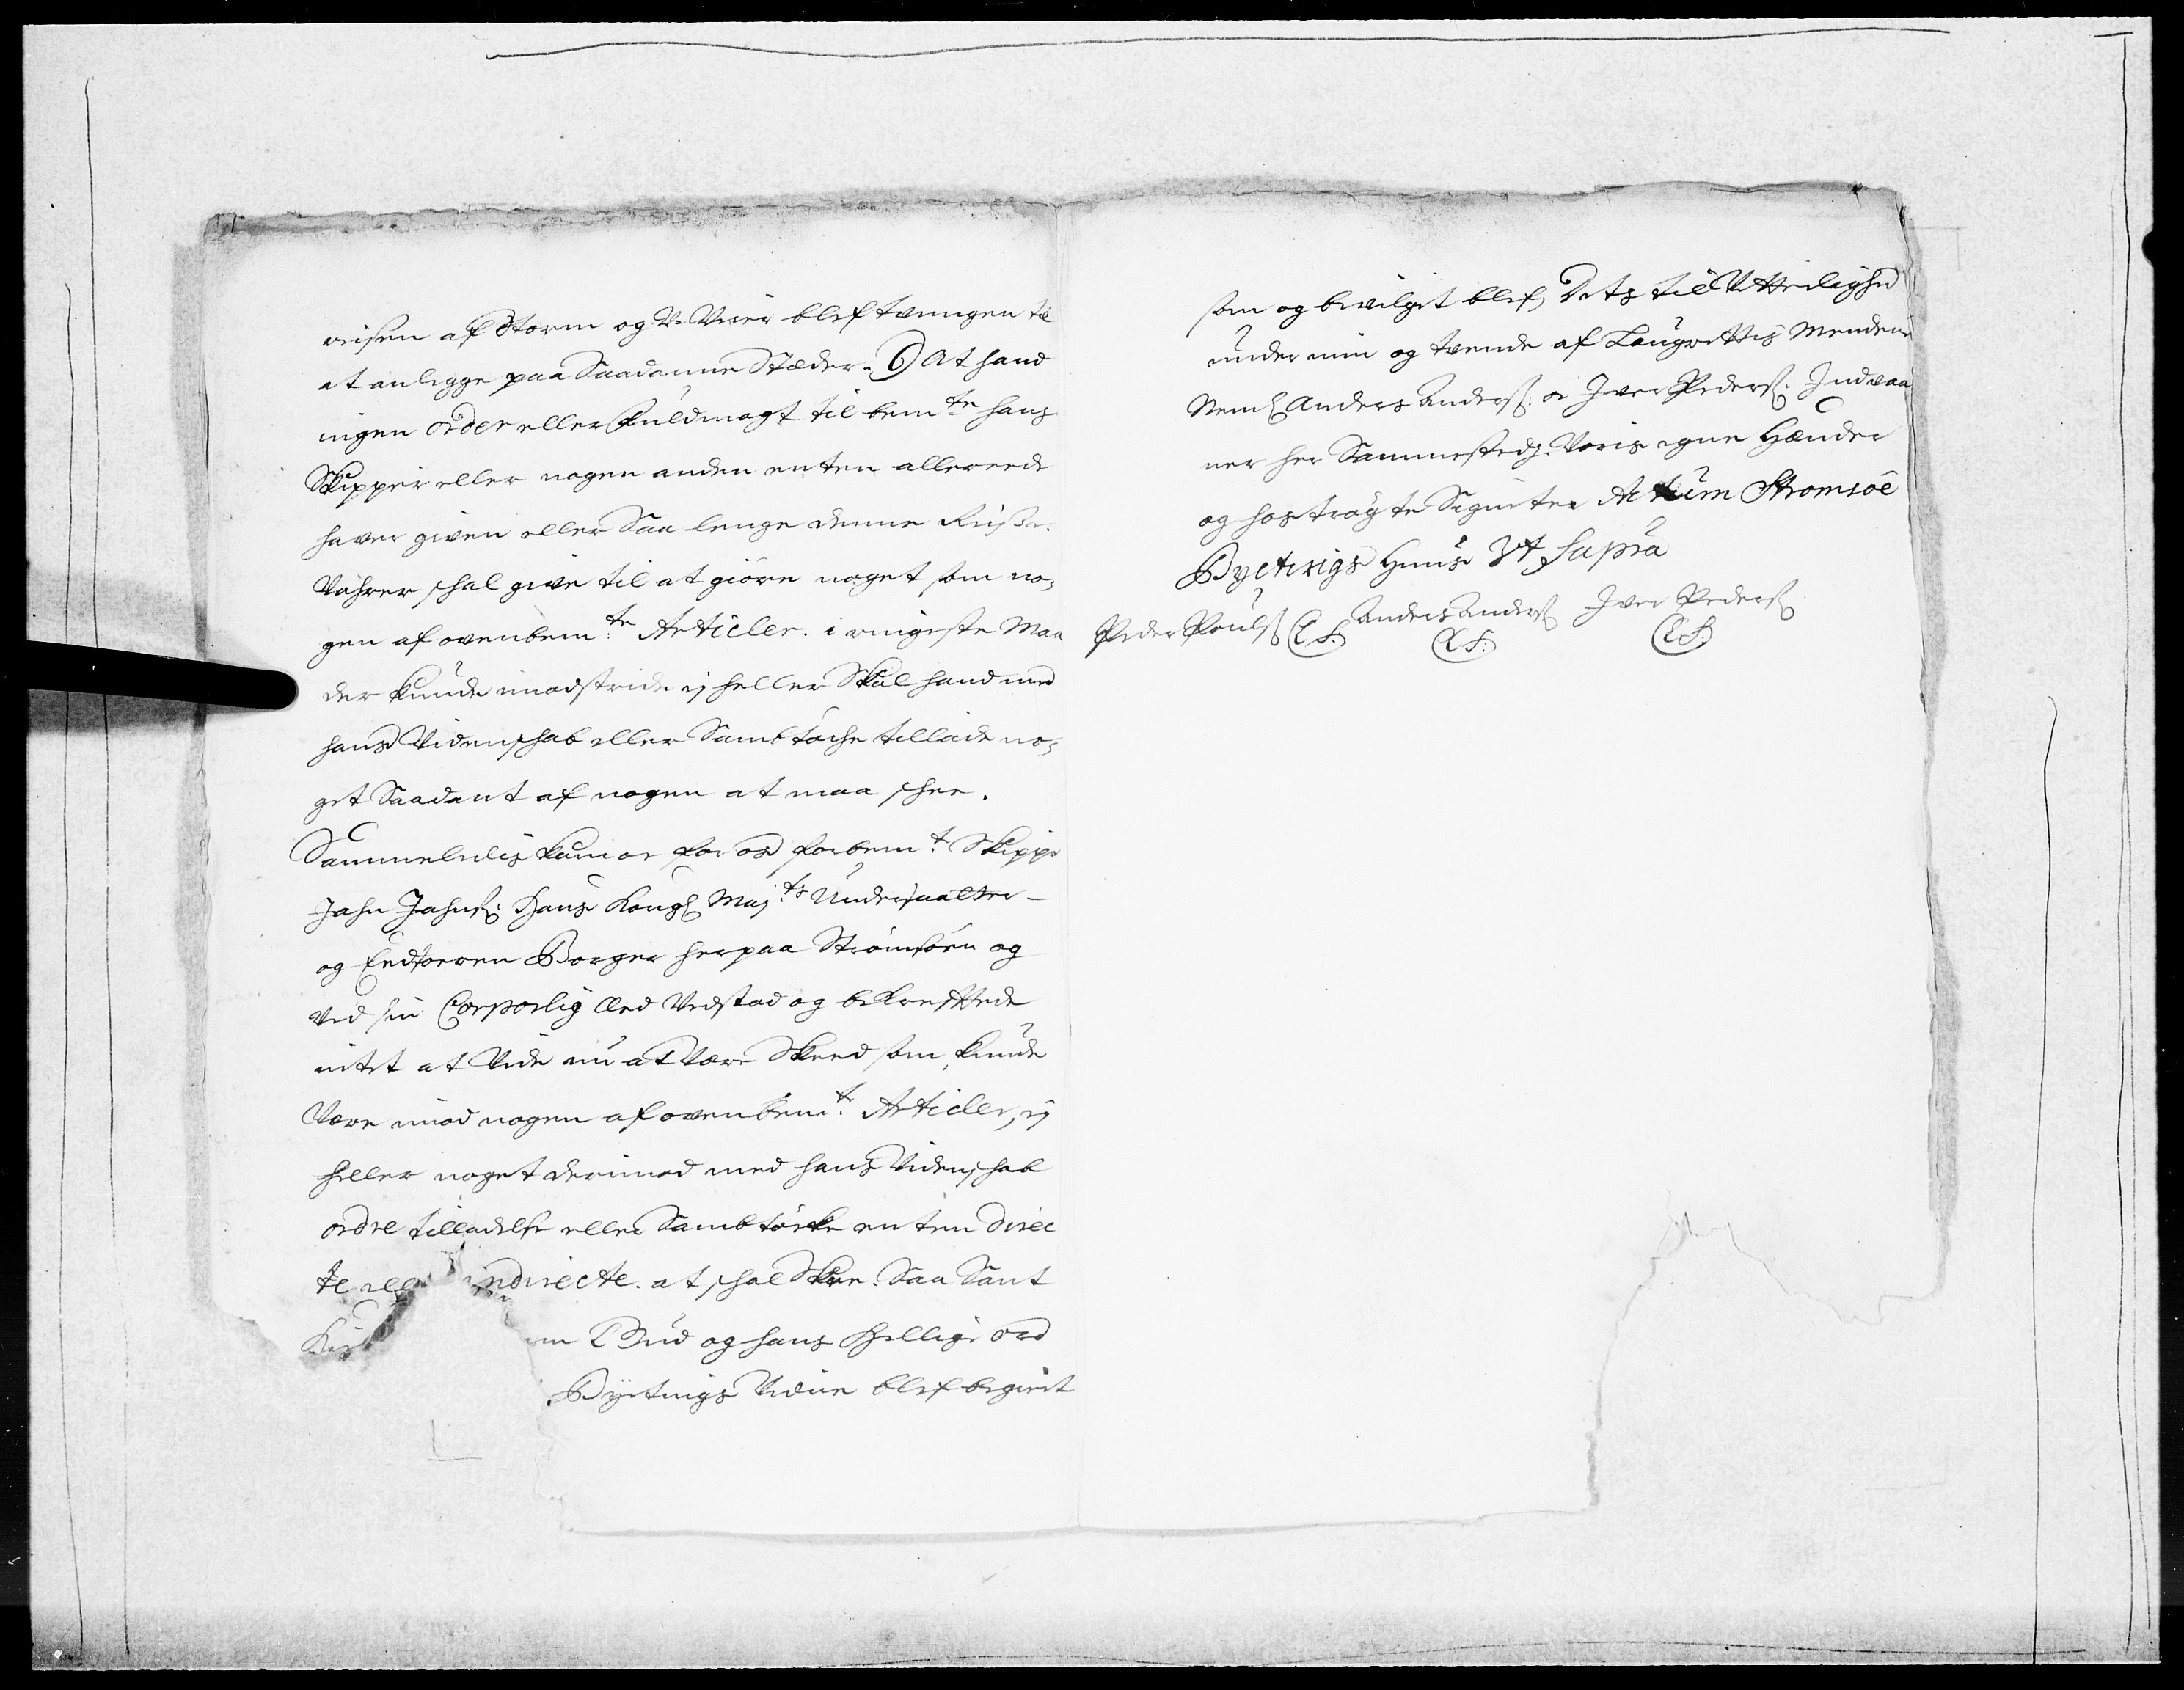 reisen af Storm og V. Veier blef tvungen til
at anligge paa Saadanne Stæder. 6) At hand
ingen order eller Fuldmagt til bem.te hans
Skipper eller nogen anden enten allereede
haver given eller Saa lenge denne Reise
Vahrer schal give til at giöre noget som no,
gen af ovenbem.te Articler i ringeste Maa
der kunde imodstride ej heller Skal hand med
hans Videnschab eller Sambtöche tillade no,
get Saadant af nogen at maa schee.
Sammeledis kom or for os forbem.t Skipper
Jahn Jahnß: Hans Kongl Maj.ts Undersaatter
og Eedsoren Borger her paa Strömsöen og
ved sin Corporlig Eed Vedstod og bekreftede
intet at Vide nu at være Skeed som kunde
Være imod nogen af ovenbem.te Articler, ej
heller noget derimod med hans Videnschab
ordre tilladelse eller Sambtöcke enten direc
te eller indirecte at schal Skee. Saa Sant
Bud og hans Hellige ord
Byetings Vidne blef begiert
som og bevilget blef, Dets til Vitterlighed
under min og tvende af Laugrettis Mendene
Neml Anders Anderß: oc Iver Pederß: Indvaa
ner her Sammestedz. Voris egne Hænder
og hoströgte Signeter Actum Stromsöe
Byetings Huus Ut Supra
Peder Poulß (L.S.) Anders Anderß (L.S.) Iver Pederß (L.S.)